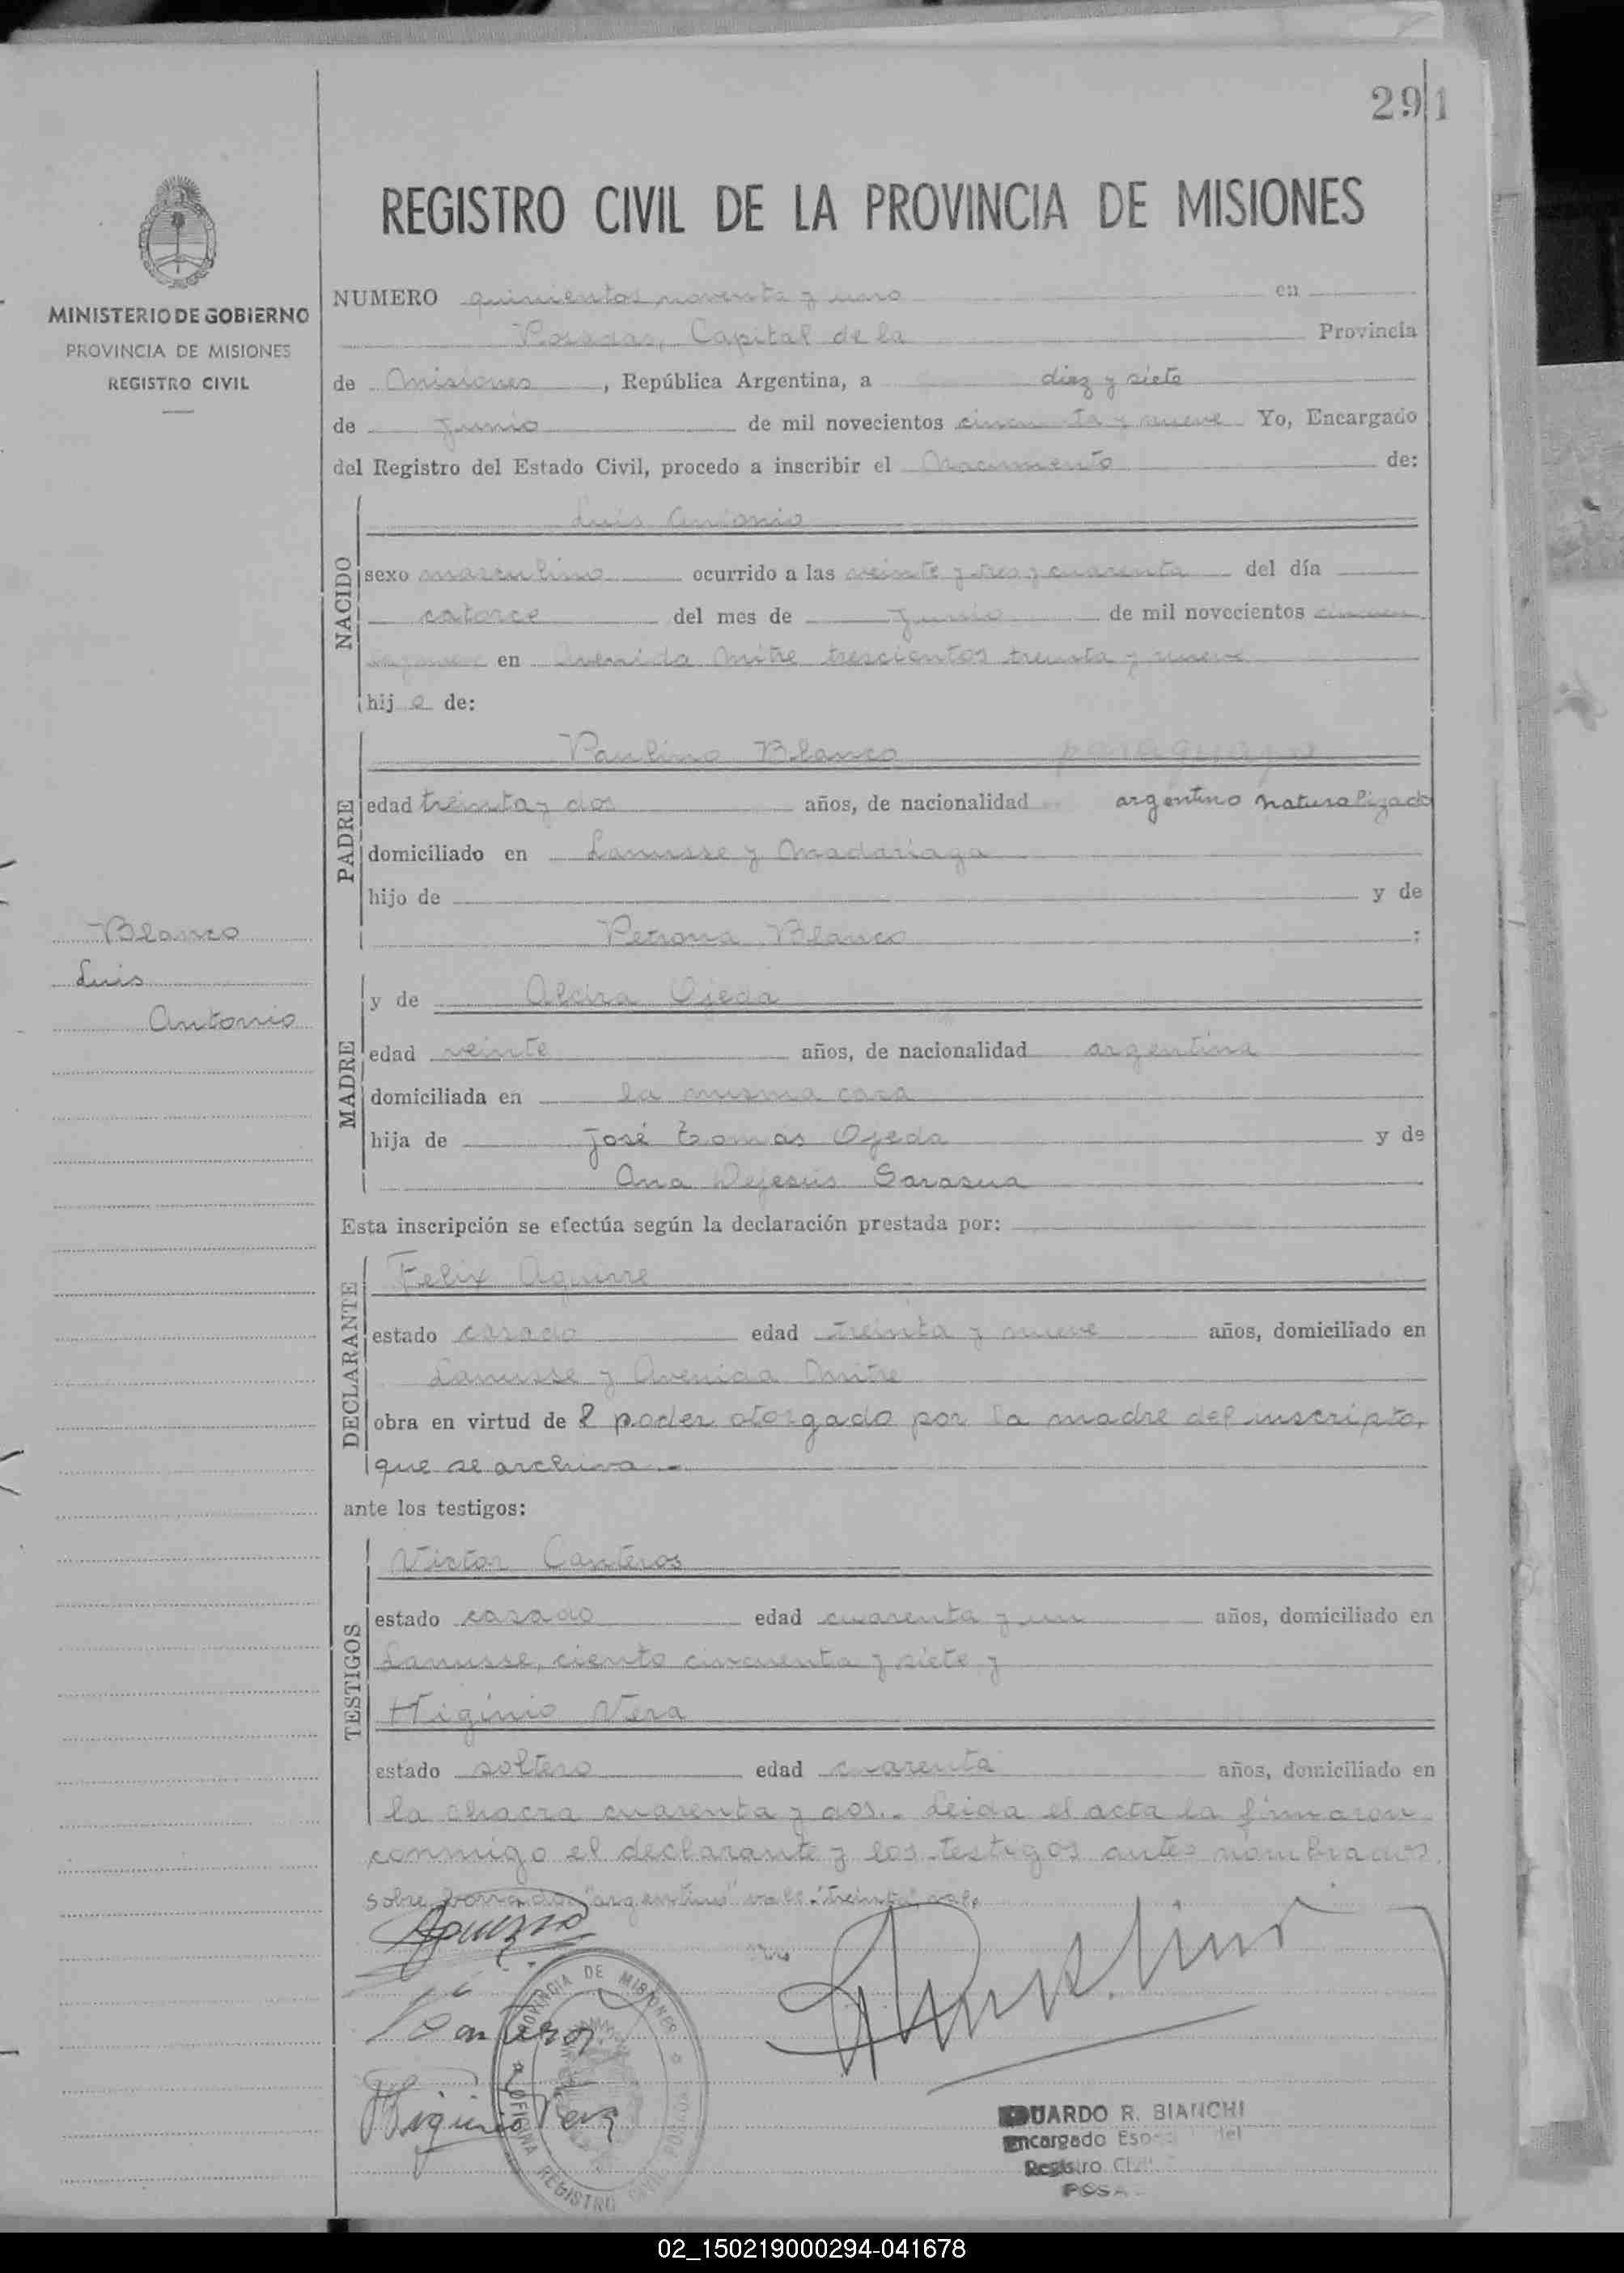 291
REGISTRO CIVIL DE LA PROVINCIA DE MISIONES
MINISTERIO DE GOBIERNO
PROVINCIA DE MISIONES
REGISTRO CIVIL
NUMERO quinientos noventa y uno en
Posadas, Capital de la Provincia
de Misiones, República Argentina, a diez y siete
de Junio de mil novecientos cincuenta y nueve Yo, Encargado
del Registro del Estado Civil, procedo a inscribir el Nacimiento de:
NACIDO
Luis Antonio
sexo masculino ocurrido a las veinte y tres y cuarenta del día
catorce del mes de Junio de mil novecientos cincuen
en Avenida Mitre trescientos treinta y nueve
hijo de:
PADRE
Paulino Blanco paraguayo
edad treinta y dos años, de nacionalidad argentino naturalizado
domiciliado en Lanusse y Madariaga
hijo de y de
Petrona Blanco :
Blanco
Luis
Antonio
MADRE
y de Alcira Ojeda
edad veinte años, de nacionalidad argentina
domiciliada en la misma casa
hija de José Tomás Ojeda y de
Ana Dejesús Sarasua
Esta inscripción se efectúa según la declaración prestada por:
DECLARANTE
Felix Aguirre
estado casado edad treinta y nueve años, domiciliado en
Lanusse y Avenida Mitre
obra en virtud de l poder otorgado por la madre del inscripto,
que se archiva.-
ante los testigos:
TESTIGOS
Victor Canteros
estado casado edad cuarenta y un años, domiciliado en
Lanusse, ciento cincuenta y siete y
Higinio Vera
estado soltero edad cuarenta años, domiciliado en
la chacra cuarenta y dos.- Leida el acta la firmaron
conmigo el declarante y los testigos antes nombrados.
sobre borrado: "argentino" vale. "treinta" vale.
Canteros
Higinio Vera
PROVINCIA DE MISIONES
OFICINA REGISTRO CIVIL POSADAS
EDUARDO R. BIANCHI
Encargado del
Registro Civil
02_150219000294-041678